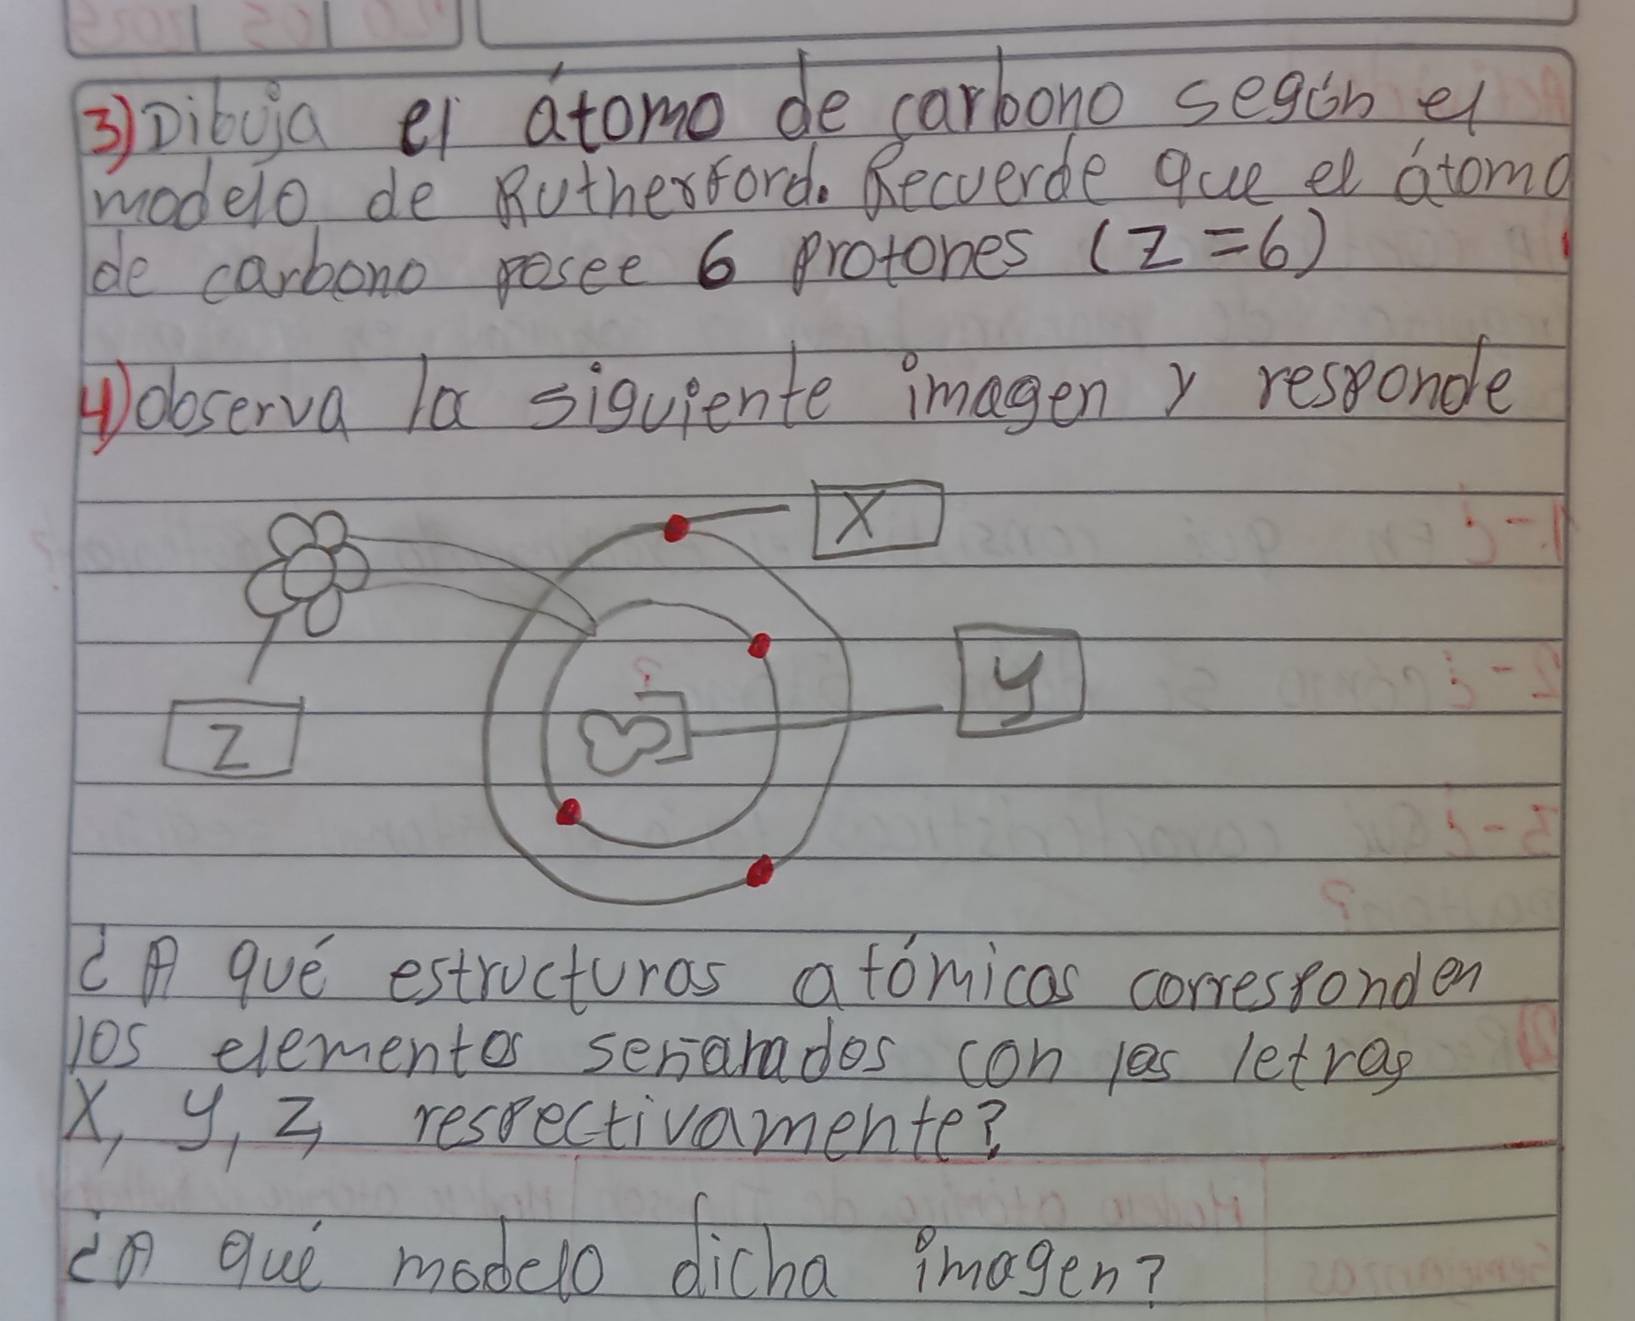 3) Dibuja el átomo de carbono según el
modelo de Rutherford. Recuerde que el átomo
de carbono posee 6 protones (Z=6)
4) Observa la siguiente imagen y responde
X
?
Y
Z
¿A qué estructuras atómicas corresponden
los elementos señalados con las letras
X, Y, Z, respectivamente?
¿A qué modelo dicha imagen?